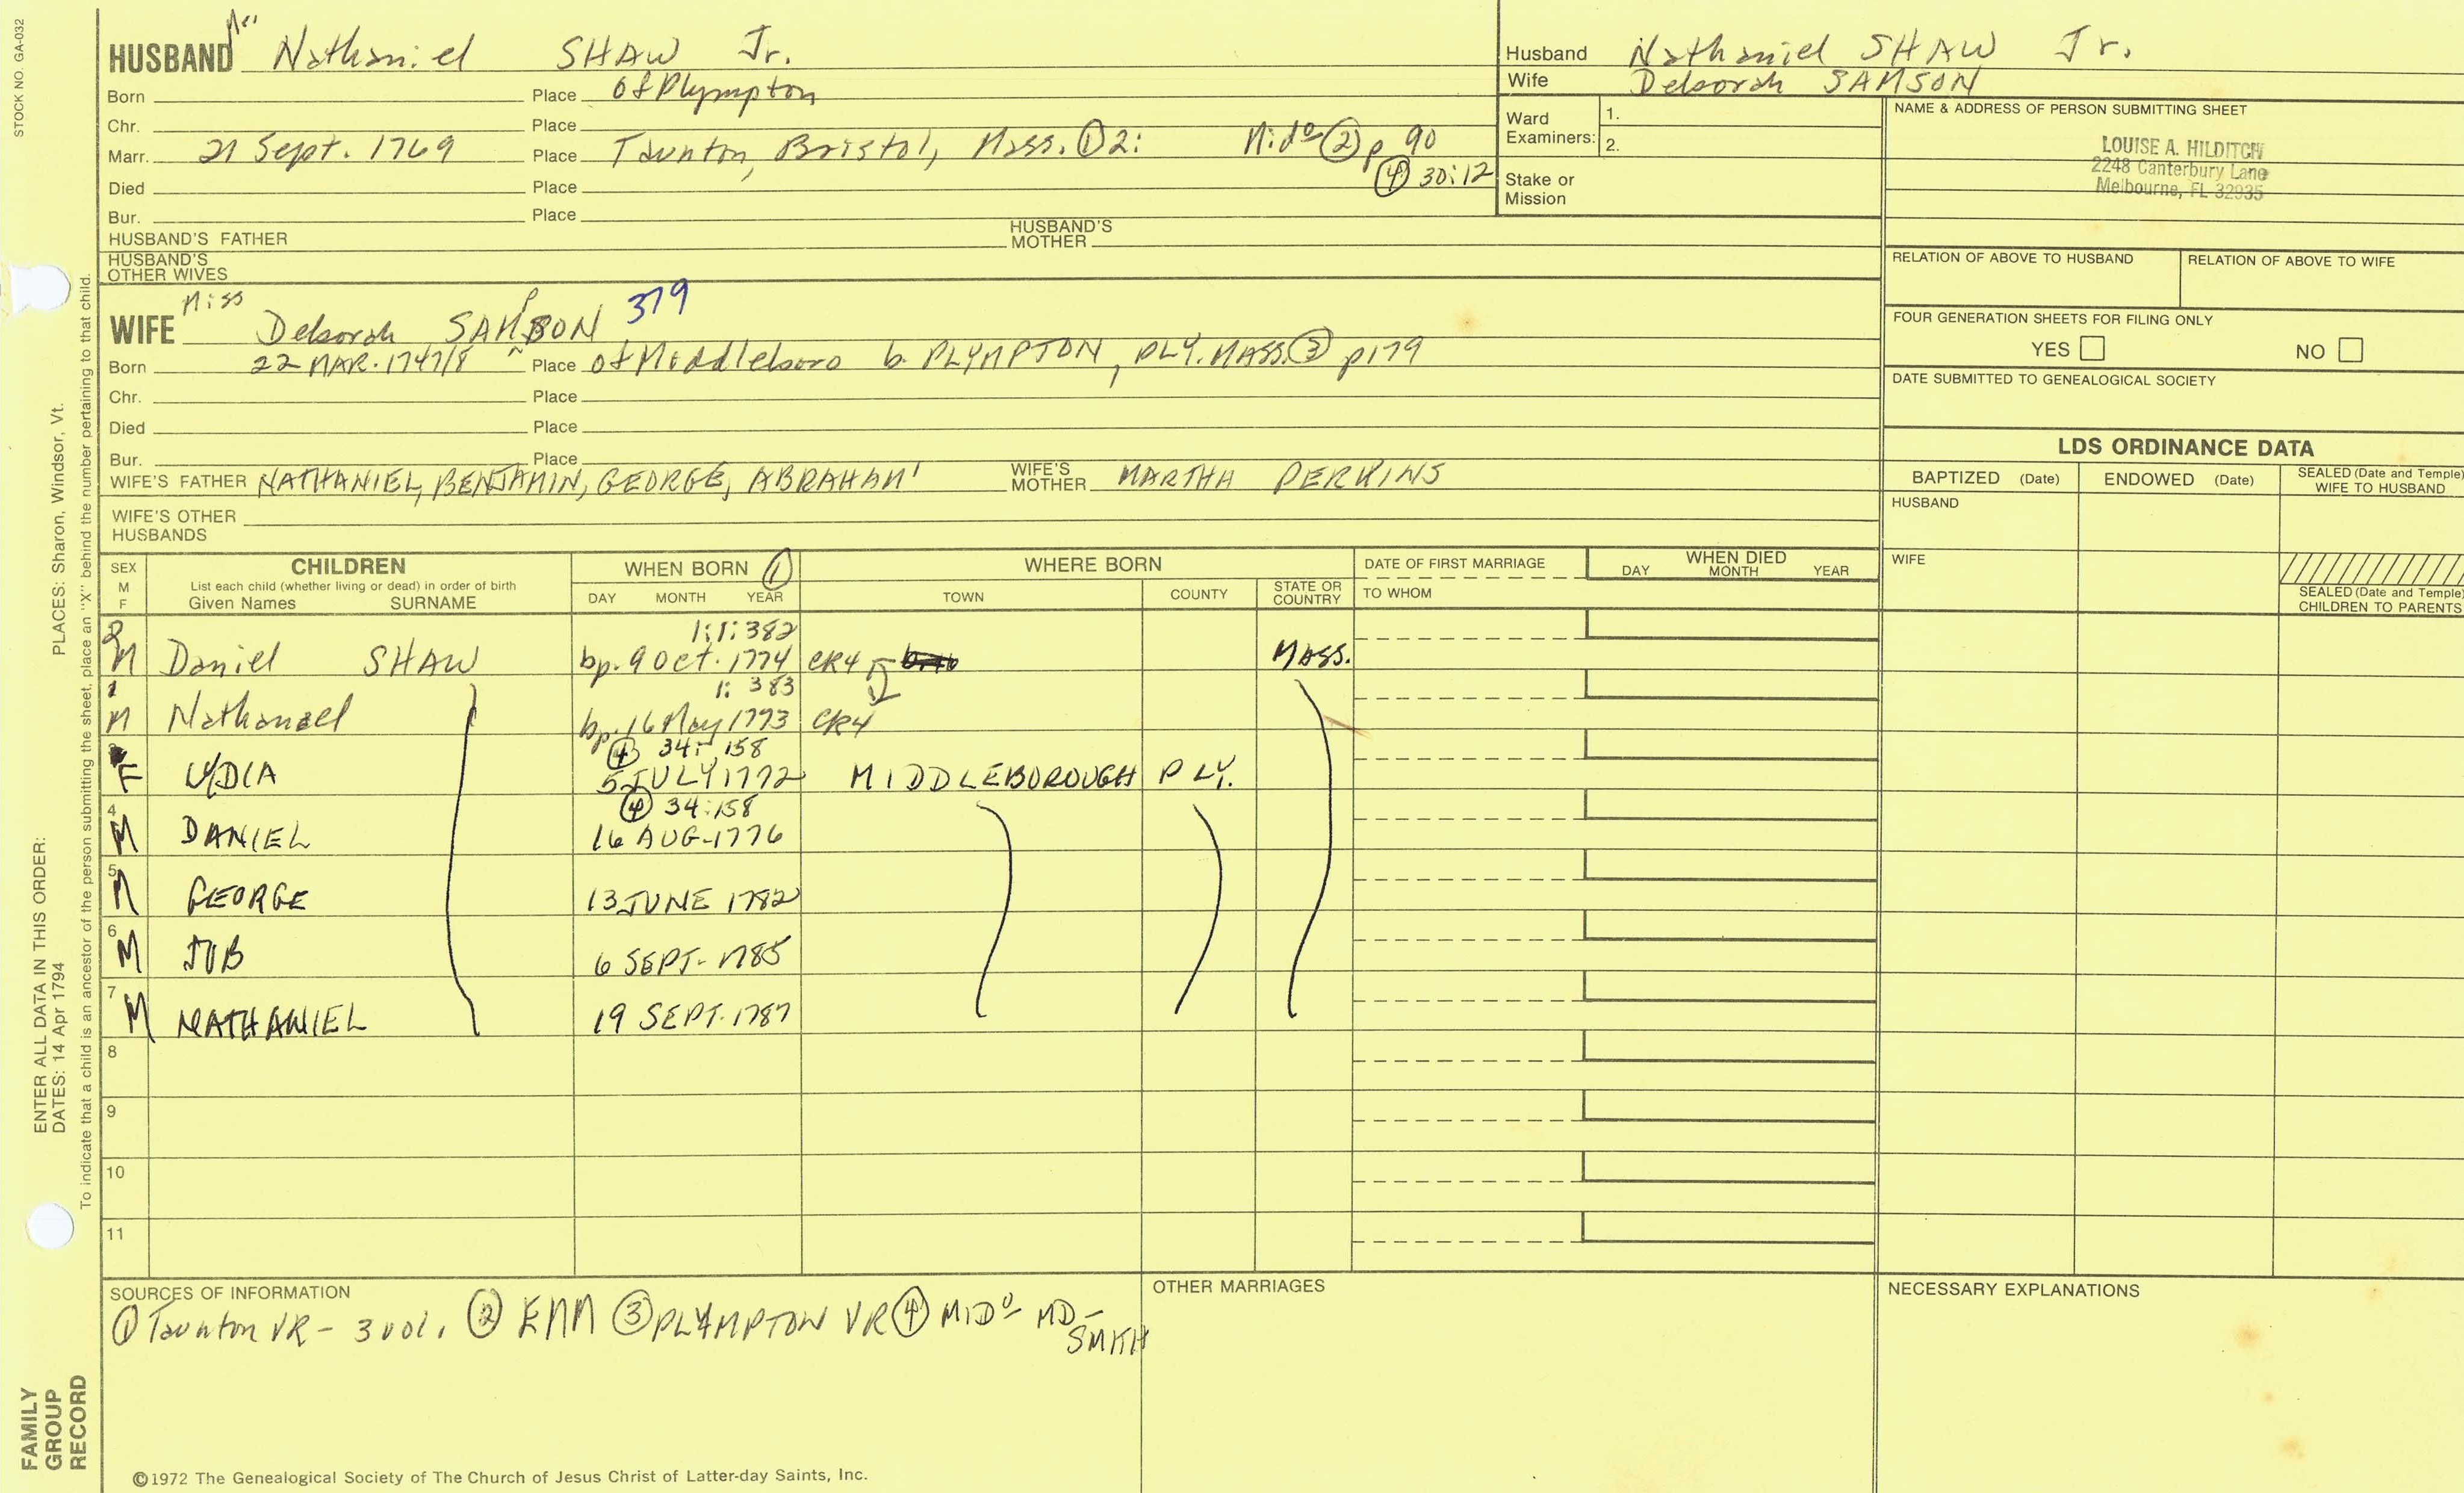 STOCK NO. GA-032
HUSBAND Nathaniel SHAW Jr.
Born Place of Plympton
Chr. Place
Marr. 21 Sept. 1769 Place Taunton, Bristol, Mass. ① 2: Mid° ② p 90
Died Place ④ 30:12
Bur. Place
HUSBAND'S FATHER HUSBAND'S MOTHER
HUSBAND'S OTHER WIVES
Husband Nathaniel SHAW Jr.
Wife Deborah SAMSON
Ward Examiners: 1.
2.
Stake or Mission
NAME & ADDRESS OF PERSON SUBMITTING SHEET
LOUISE A. HILDITCH
2248 Canterbury Lane
Melbourne, FL 32935
RELATION OF ABOVE TO HUSBAND RELATION OF ABOVE TO WIFE
FOUR GENERATION SHEETS FOR FILING ONLY
YES NO
DATE SUBMITTED TO GENEALOGICAL SOCIETY
Miss P 379
WIFE Deborah SAMSON
Born 22 MAR. 1747/8 Place of Middleboro b. PLYMPTON, PLY. MASS. ③ p179
Chr. Place
Died Place
Bur. Place
WIFE'S FATHER NATHANIEL, BENJAMIN, GEORGE, ABRAHAM' WIFE'S MOTHER MARTHA PERKINS
WIFE'S OTHER HUSBANDS
LDS ORDINANCE DATA
BAPTIZED (Date) ENDOWED (Date) SEALED (Date and Temple) WIFE TO HUSBAND
HUSBAND
WIFE
SEALED (Date and Temple) CHILDREN TO PARENTS
SEX M F CHILDREN List each child (whether living or dead) in order of birth Given Names SURNAME
WHEN BORN ① DAY MONTH YEAR
WHERE BORN TOWN COUNTY STATE OR COUNTRY
DATE OF FIRST MARRIAGE TO WHOM
WHEN DIED DAY MONTH YEAR
1:1:382
2 M Daniel SHAW bp. 9 Oct. 1774 CR4 MASS.
1: 383
1 M Nathanael bp. 16 May 1773 CR4
④ 34: 158
F LYDIA 5 JULY 1772 MIDDLEBOROUGH PLY.
④ 34:158
4 M DANIEL 16 AUG. 1776
5 M GEORGE 13 JUNE 1782
6 M JOB 6 SEPT. 1785
7 M NATHANIEL 19 SEPT. 1787
8
9
10
11
SOURCES OF INFORMATION
① Taunton VR - 3 vol. ② EMM ③ PLYMPTON VR ④ MID° MD-
SMITH
OTHER MARRIAGES
NECESSARY EXPLANATIONS
©1972 The Genealogical Society of The Church of Jesus Christ of Latter-day Saints, Inc.
FAMILY GROUP RECORD
ENTER ALL DATA IN THIS ORDER:
DATES: 14 Apr 1794
PLACES: Sharon, Windsor, Vt.
To indicate that a child is an ancestor of the person submitting the sheet, place an "X" behind the number pertaining to that child.